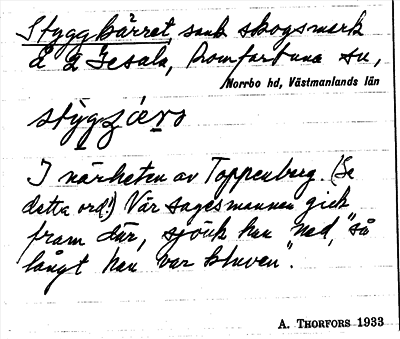 Styggkärret sank skogsmark
å 2 Gesala, Romfartuna sn,
Norrbo hd, Västmanlands län
I närheten av Toppenberg. (Se
detta ord!) När sagesmannen gick
fram där, sjönk han "ned, "så
långt han var kluven".
A. THORFORS 1933